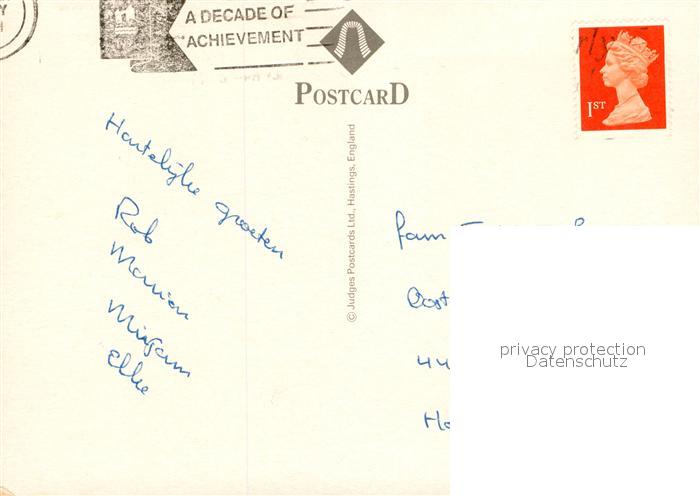 A DECADE OF
ACHIEVEMENT
POSTCARD
1ST
© Judges Postcards Ltd., Hastings, England
Hartelijke groeten
Rob
Marrion
Mirjam
Elke
fam
Oost
44
privacy protection
Datenschutz